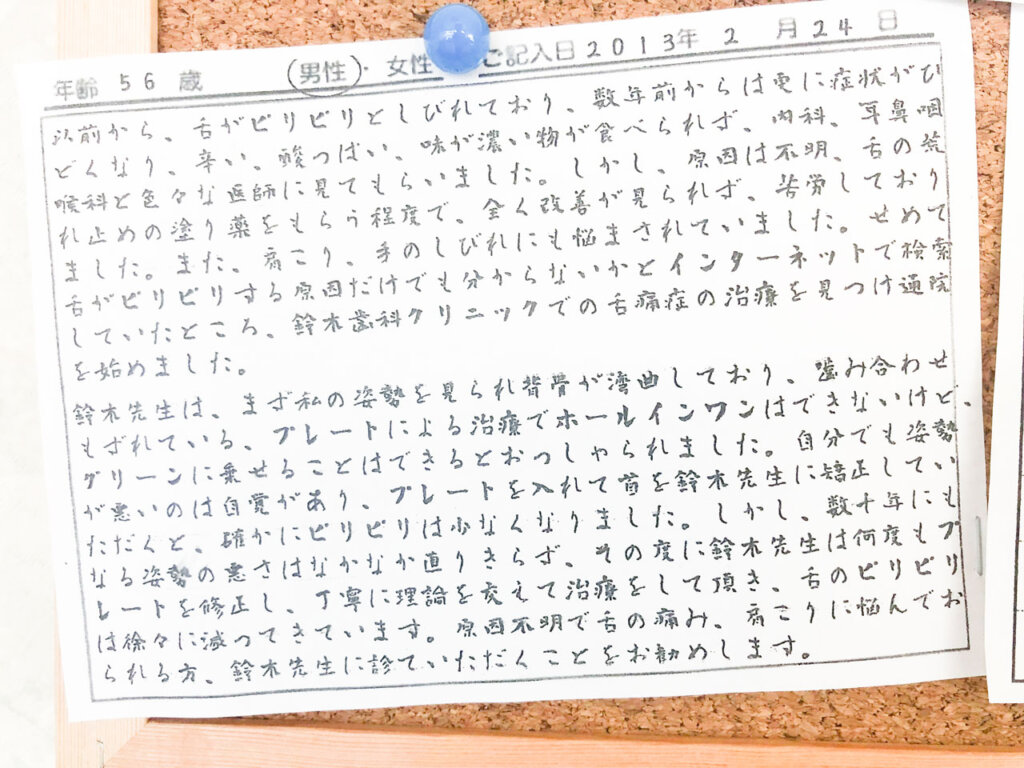 年齢 56 歳 (男性)・女性 ご記入日 2013年 2 月 24 日
以前から、舌がビリビリとしびれており、数年前からは更に症状がひ
どくなり、辛い、酸っぱい、味が濃い物が食べられず、内科、耳鼻咽
喉科と色々な医師に見てもらいました。しかし、原因は不明、舌の荒
れ止めの塗り薬をもらう程度で、全く改善が見られず、苦労しており
ました。また、肩こり、手のしびれにも悩まされていました。せめて
舌がビリビリする原因だけでも分からないかとインターネットで検索
していたところ、鈴木歯科クリニックでの舌痛症の治療を見つけ通院
を始めました。
鈴木先生は、まず私の姿勢を見られ背骨が湾曲しており、噛み合わせ
もずれている、プレートによる治療でホールインワンはできないけど、
グリーンに乗せることはできるとおっしゃられました。自分でも姿勢
が悪いのは自覚があり、プレートを入れて首を鈴木先生に矯正してい
ただくと、確かにビリビリは少なくなりました。しかし、数十年にも
なる姿勢の悪さはなかなか直りきらず、その度に鈴木先生は何度もプ
レートを修正し、丁寧に理論を交えて治療をして頂き、舌のビリビリ
は徐々に減ってきています。原因不明で舌の痛み、肩こりに悩んでお
られる方、鈴木先生に診ていただくことをお勧めします。